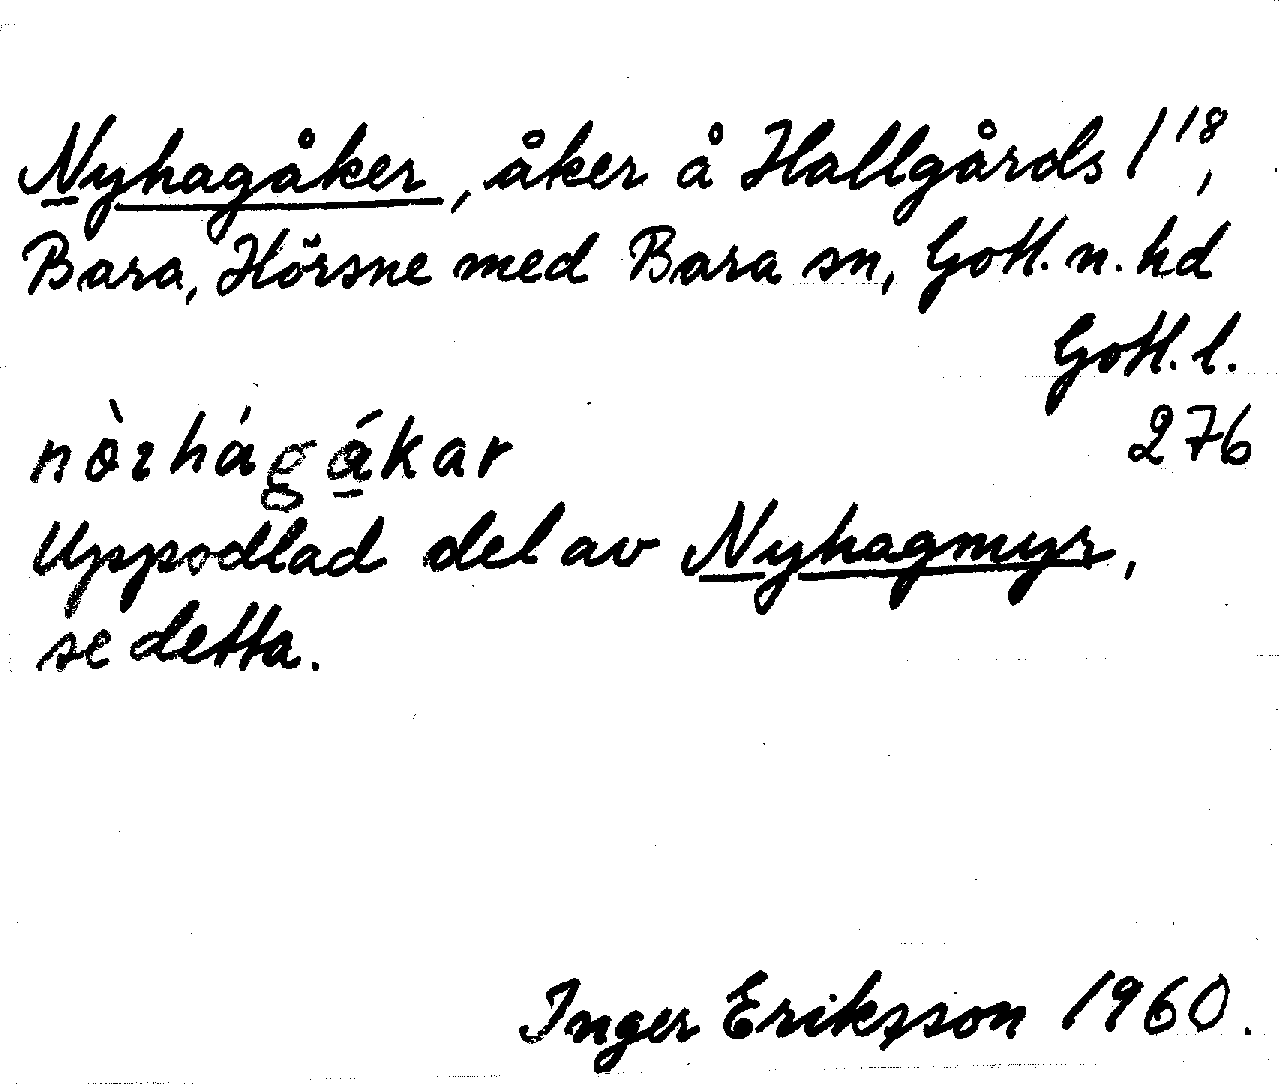 Nyhagåker, åker å Hallgårds 1¹⁸,
Bara, Hörsne med Bara sn, Gotl. n. hd
Gotl. l.
276
Uppodlad del av Nyhagmyr,
se detta.
Inger Eriksson 1960.